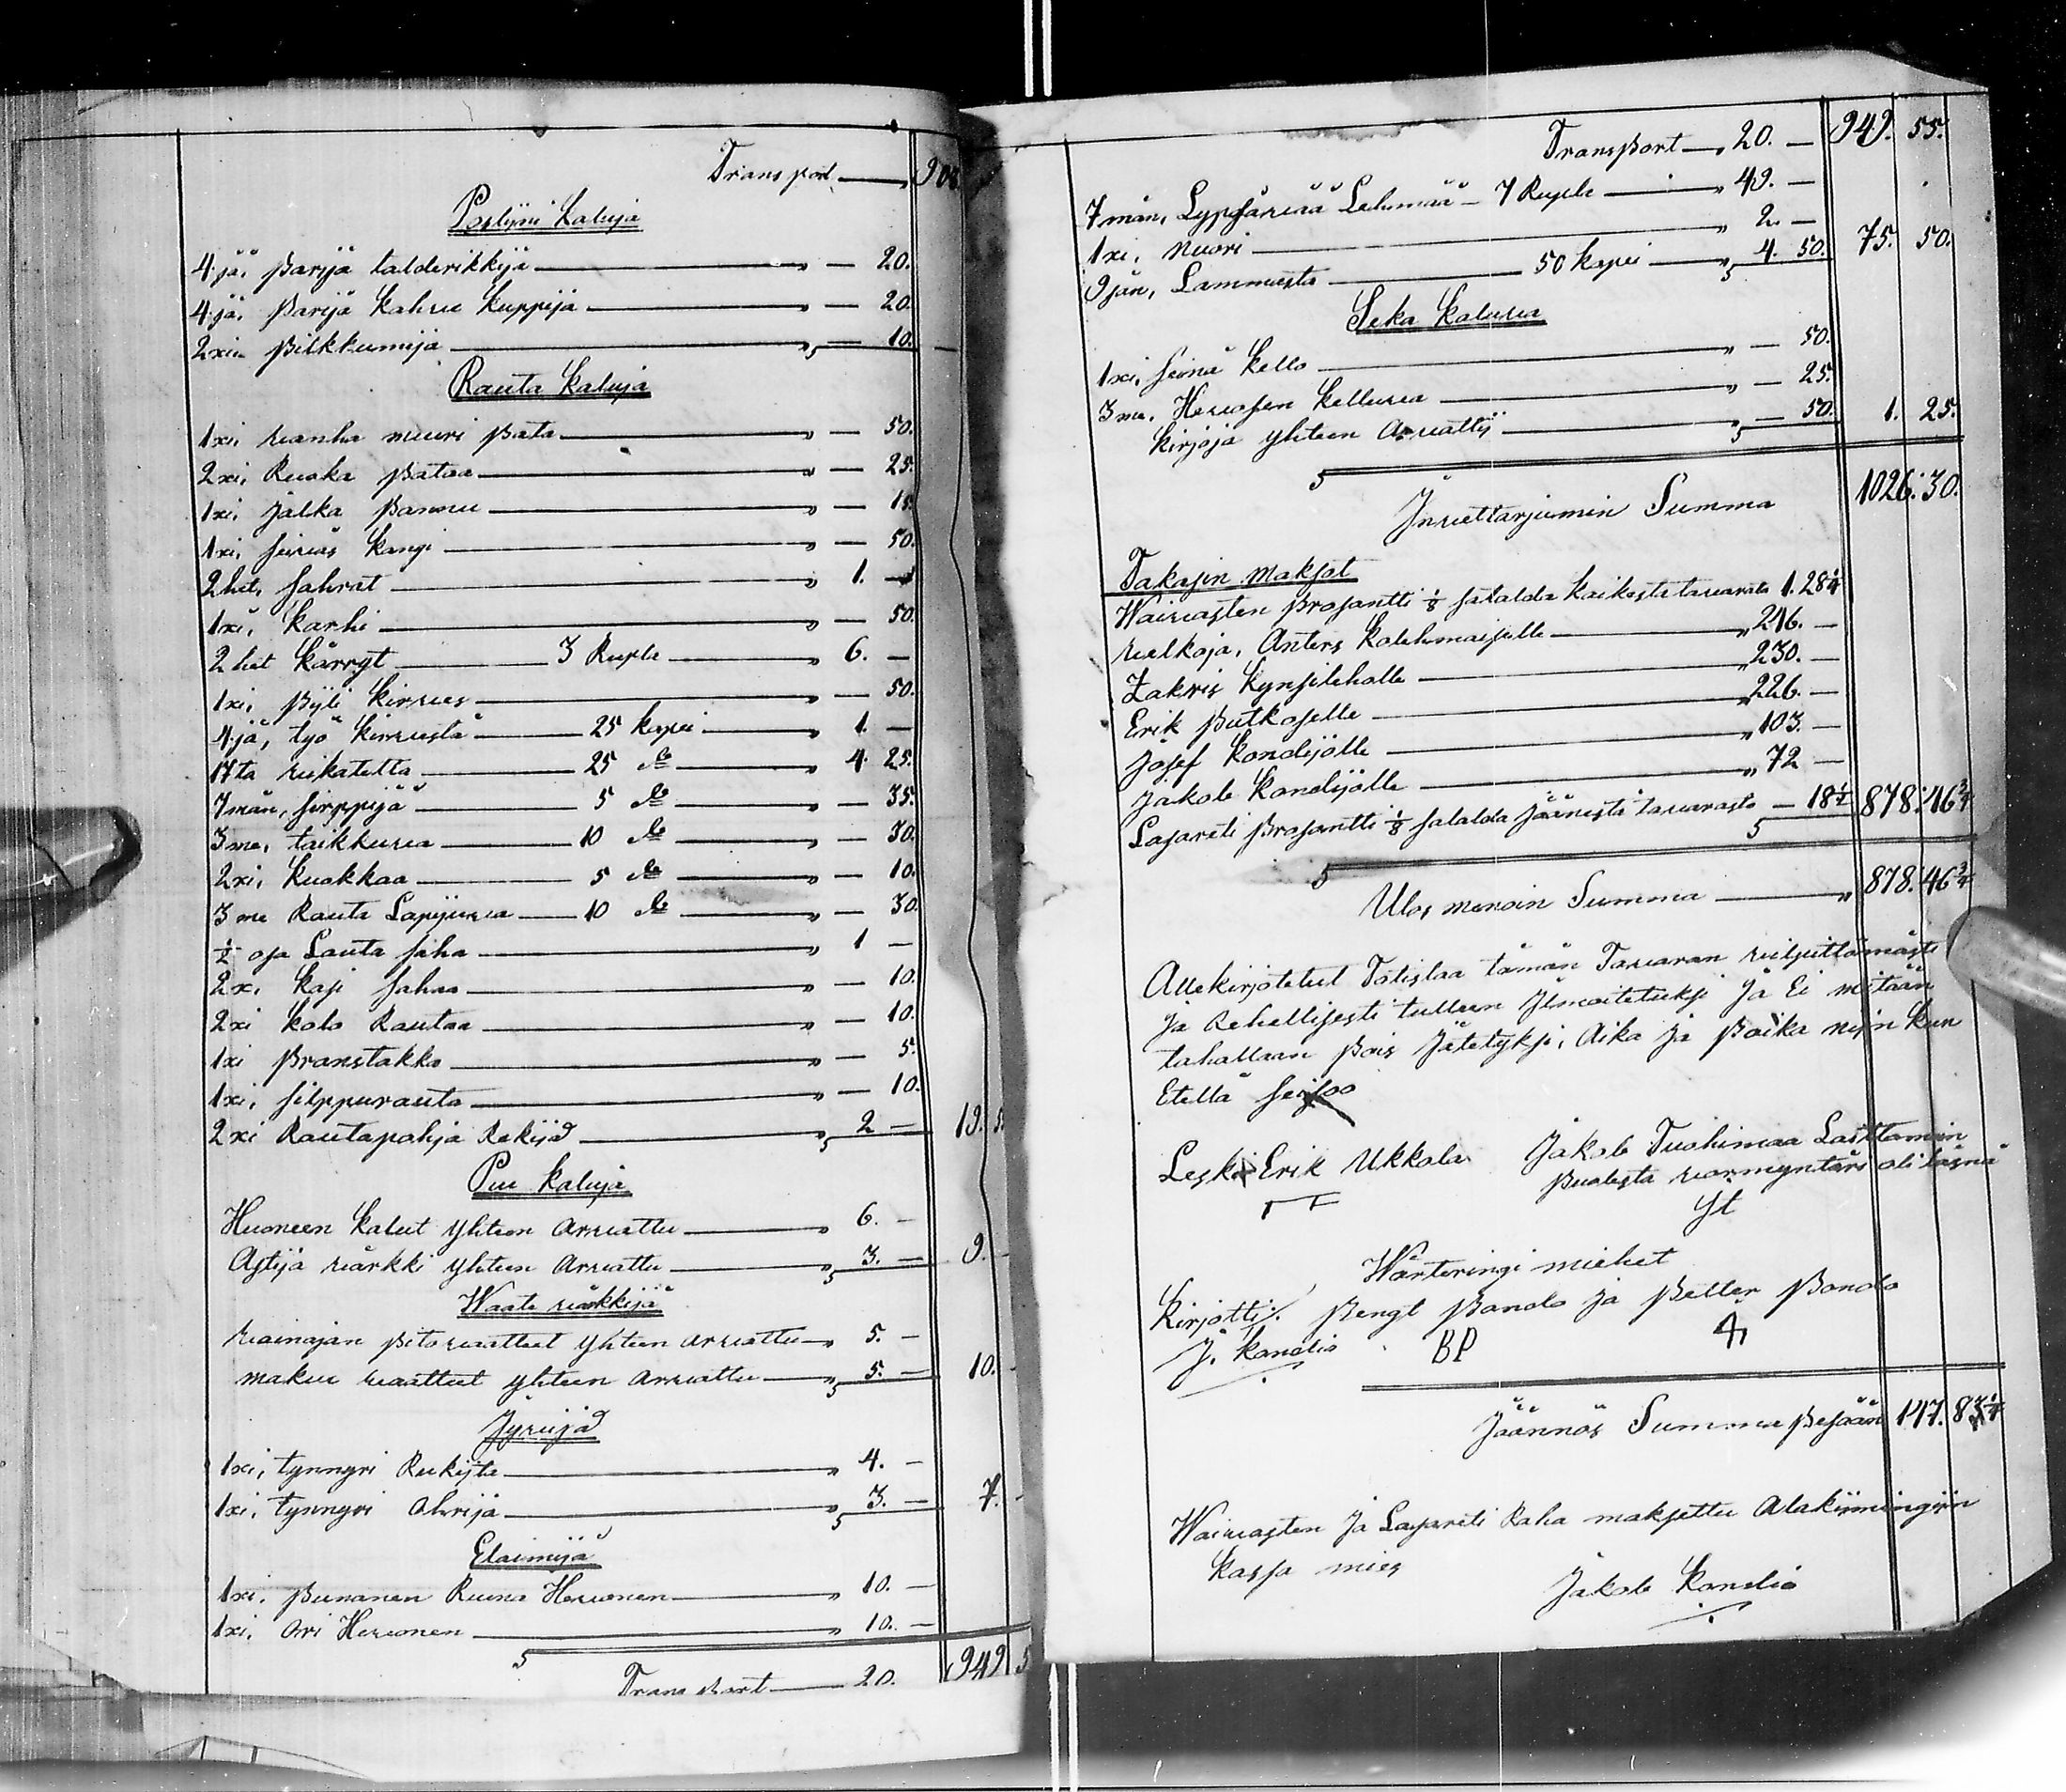 Transport — 908
Poslijni Kaluja
4jä. parija talderikkija — 20.
4jä. parija Kahvu Kuppija — 20.
2xi. pilkkumija — 10.
Rauta Kaluja
1xi. vanha muuri pata — 50.
2xi. Ruoka pataa — 25.
1xi. jalka pannu — 15.
1xi. seiväs kangi — 50.
2het. sahrat — 1. —
1xi. karhi — 50.
2het kärryt — 3 Rupla — 6. —
1xi. pijli kirves — 50.
4jä, työ kirvestä — 25 kopei — 1. —
17ta viikatetta — 25 do — 4. 25.
7män, sirppijä — 5 do — 35.
3me, taikkuva — 10 do — 30.
2xi, kuokkaa — 5 do — 10.
3me Rauta Lapijuva — 10 do — 30.
½ osa Lauta saha — 1 —
2xi kasi sahaa — 10.
2xi kolo Rautaa — 10.
1xi pranstakko — 5.
1xi, silppurauta — 10.
2xi Rautapohja Rekijä — 2 — 19. 5
Puu kaluja
Huoneen kalut yhteen arvattu — 6. —
Astija värkki yhteen arvattu — 3. — 9. —
Waate värkkijä
vainajan pitovaatteet yhteen arvattu — 5. —
makuu vaatteet yhteen arvattu — 5. — 10. —
Jyvijä
1xi, tynnyri Rukista — 4. —
1xi, tynnyri ohrija — 3. — 7. —
Elaimijä
1xi. punanen Ruuna Hevonen — 10. —
1xi. Ori Hevonen — 10. —
Transport — 20. 949 5
Transport — 20. — 949. 55.
7män, Lypsävää Lehmää — 7 Rupla — 49. —
1xi, nuori — 2. —
9jän, Lammasta — 50 kopei — 4. 50. 75. 50.
Seka Kaluva
1xi, seinä kello — 50.
3me. Hevosen kelluva — 25.
kirjoja yhteen arvattu — 50. 1. 25.
Jnvettarjumin Summa 1026. 30.
Takasin maksot
Waivasten prosantti ⅛ satalda kaikesta tavarata 1. 28¼
velkoja, Anters Kolehmaiselle — 216. —
Zakris Kynsileholle — 230. —
Erik Putkoselle — 226. —
Josef Kondijolle — 103. —
Jakob Kondijolle — 72 —
Lasareti prosantti ⅛ satalda jäänestä tavarasta — 18½ 878. 46¾
Ulos menoin Summa — 878. 46¾
Allekirjotetut Totistaa tämän Tavaran vilpittömästi
ja Rehellisesti tulleen Jlmoitetuksi ja Ei mitään
tahallaan pois Jätetyksi, Aika ja paika nijn kun
Etellä seisoo
Leski Erik Ukkola
Jakob Tuohimaa Lasttamin
puolesta varmyntäri oli läsnä
Jt
Wärteringi miehet
Kirjotti:/. Bengt Pondo ja Petter Pondo
J. kondio BP
Jäännös Summa pesään 147. 83¼
Waivasten ja Lasareti Raha maksettu Alakiimingiin
kassa mies
Jakob Kondio